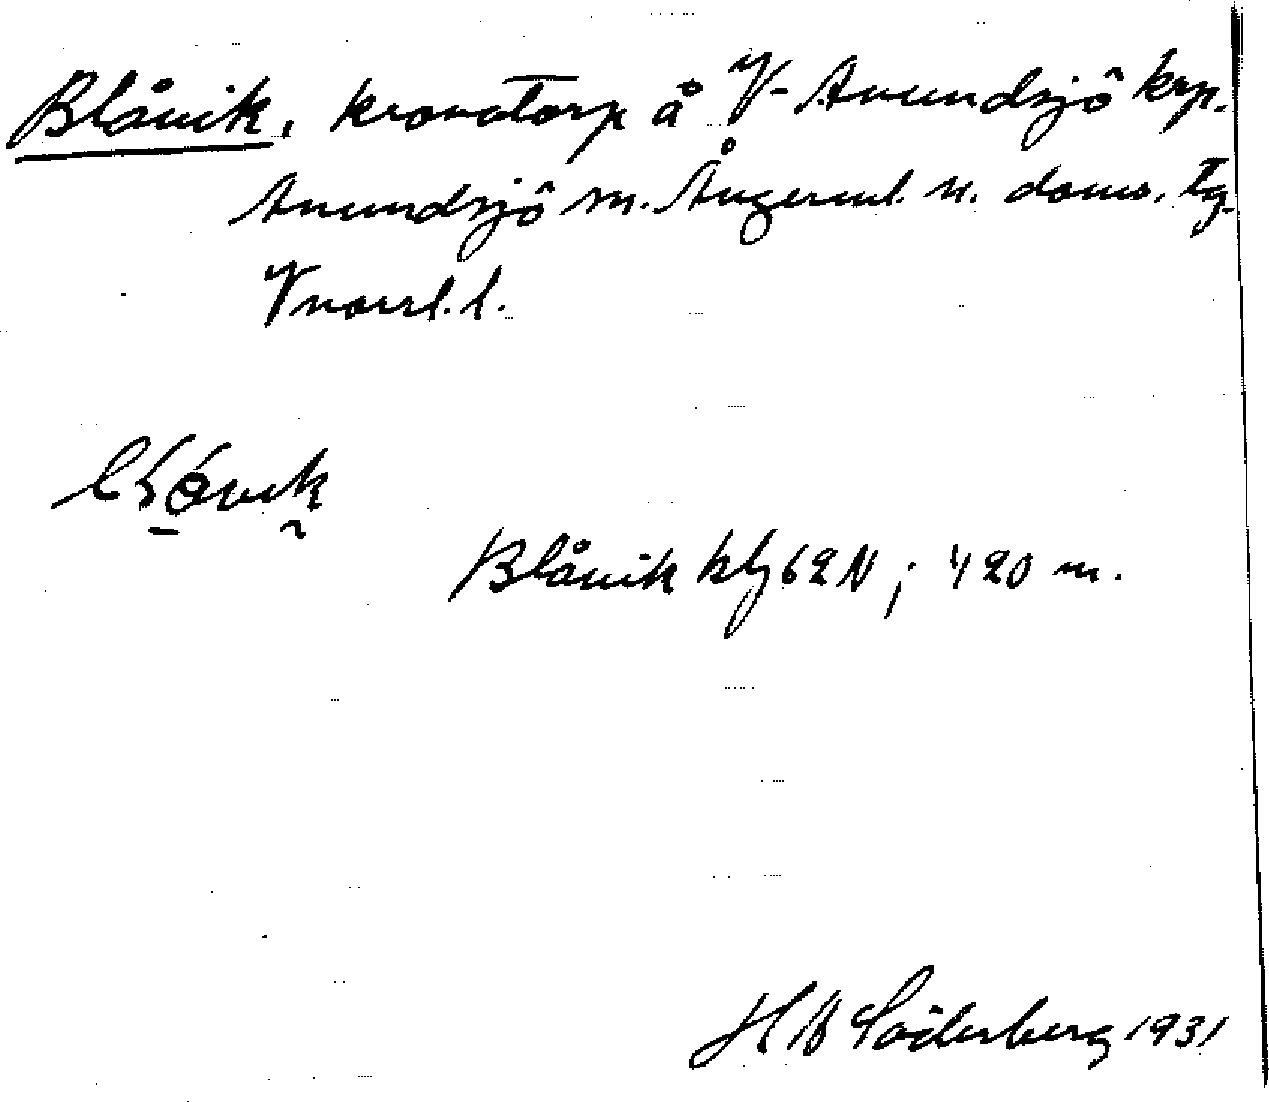 Blåvik, kronotorp å V-Anundsjö krp.
Anundsjö sn. Ångerml. n. doms. tg.
Vnorrl. l.
Blåvik klj 62 N; 420 m.
H A Söderberg 1931